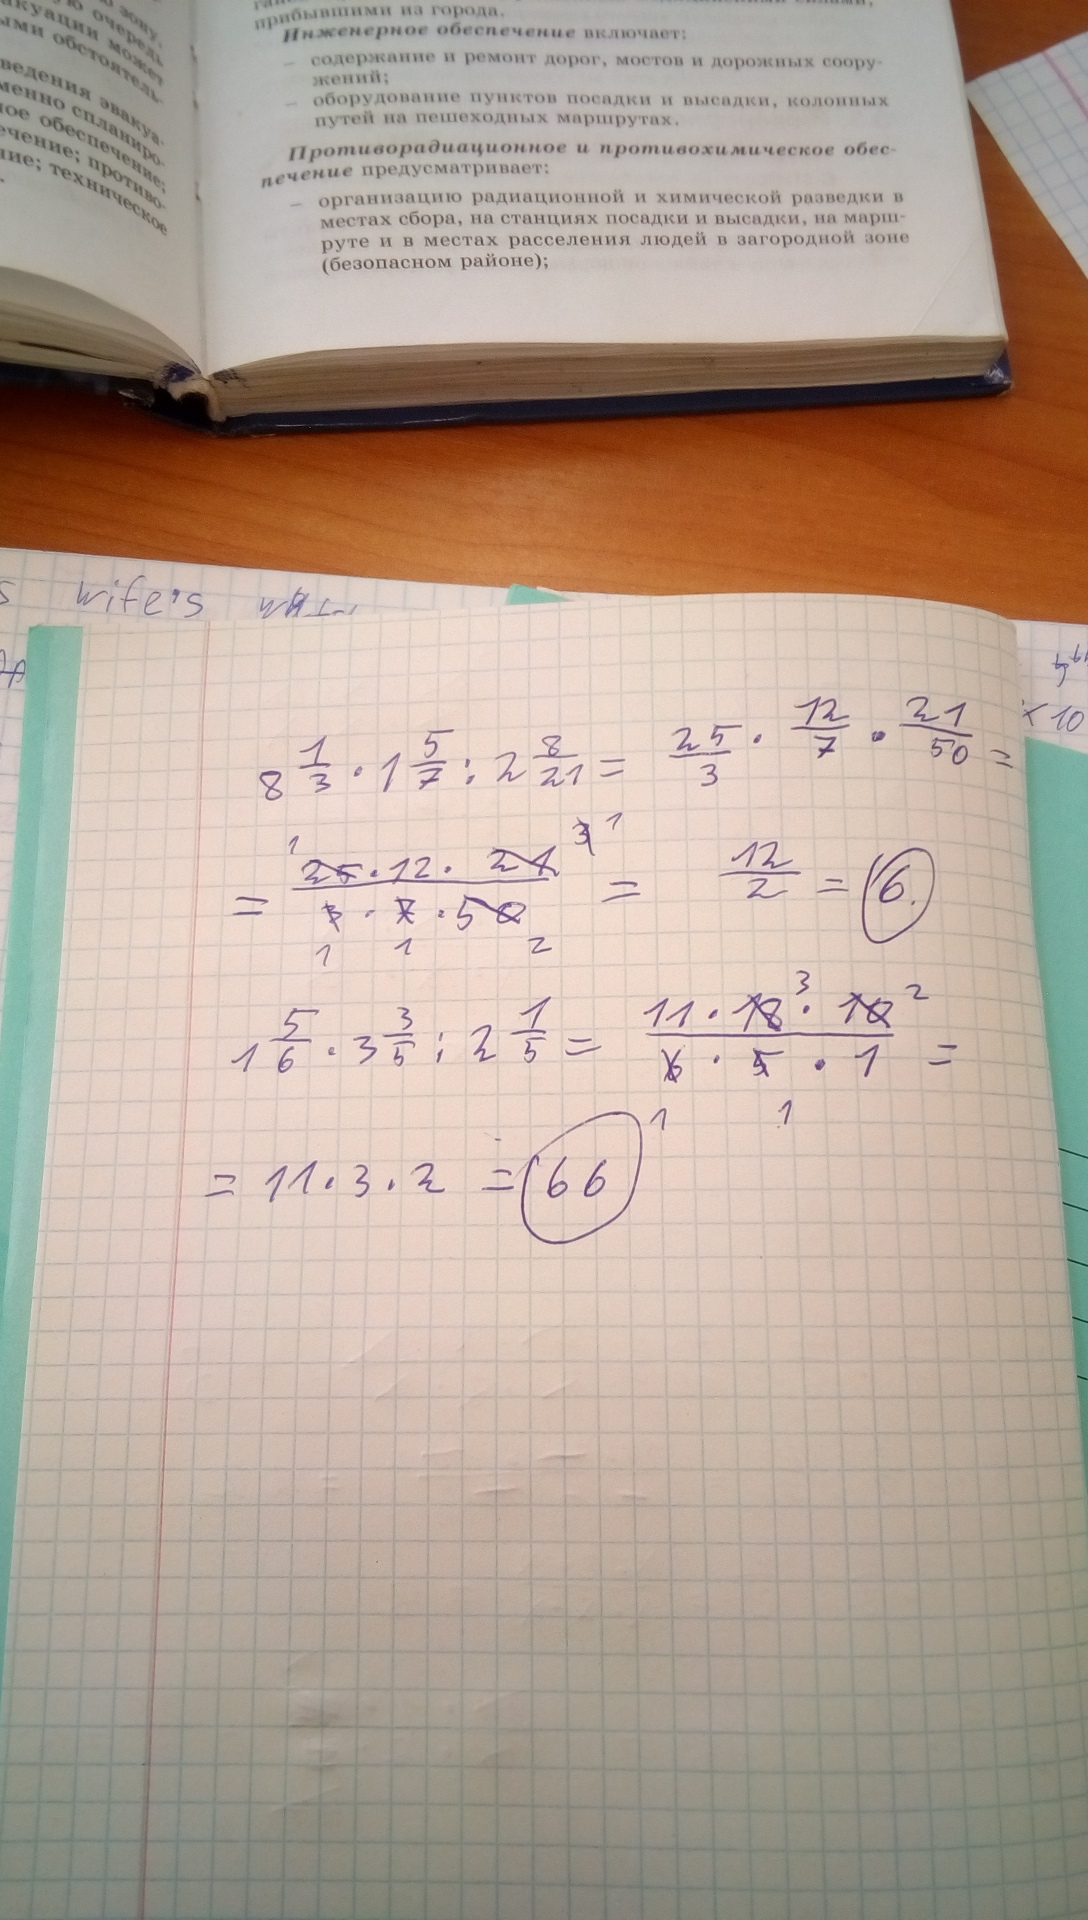 ю зону,
ую очередь
акуации может
ыми обстоятель-
ведения эвакуа-
менно спланиро-
ное обеспечение;
ечение; противо-
ние; техническое
прибывшими из города.
Инженерное обеспечение включает:
– содержание и ремонт дорог, мостов и дорожных соору-
жений;
– оборудование пунктов посадки и высадки, колонных
путей на пешеходных маршрутах.
Противорадиационное и противохимическое обес-
печение предусматривает:
– организацию радиационной и химической разведки в
местах сбора, на станциях посадки и высадки, на марш-
руте и в местах расселения людей в загородной зоне
(безопасном районе);
s wife's
× 10
8 1/3 · 1 5/7 : 2 8/21 = 25/3 · 12/7 · 21/50 =
= 25 · 12 · 21 / 3 · 7 · 50 = 12/2 = 6.
1 5/6 · 3 3/5 : 2 1/5 = 11 · 18 · 10 / 6 · 5 · 1 =
= 11 · 3 · 2 = 66